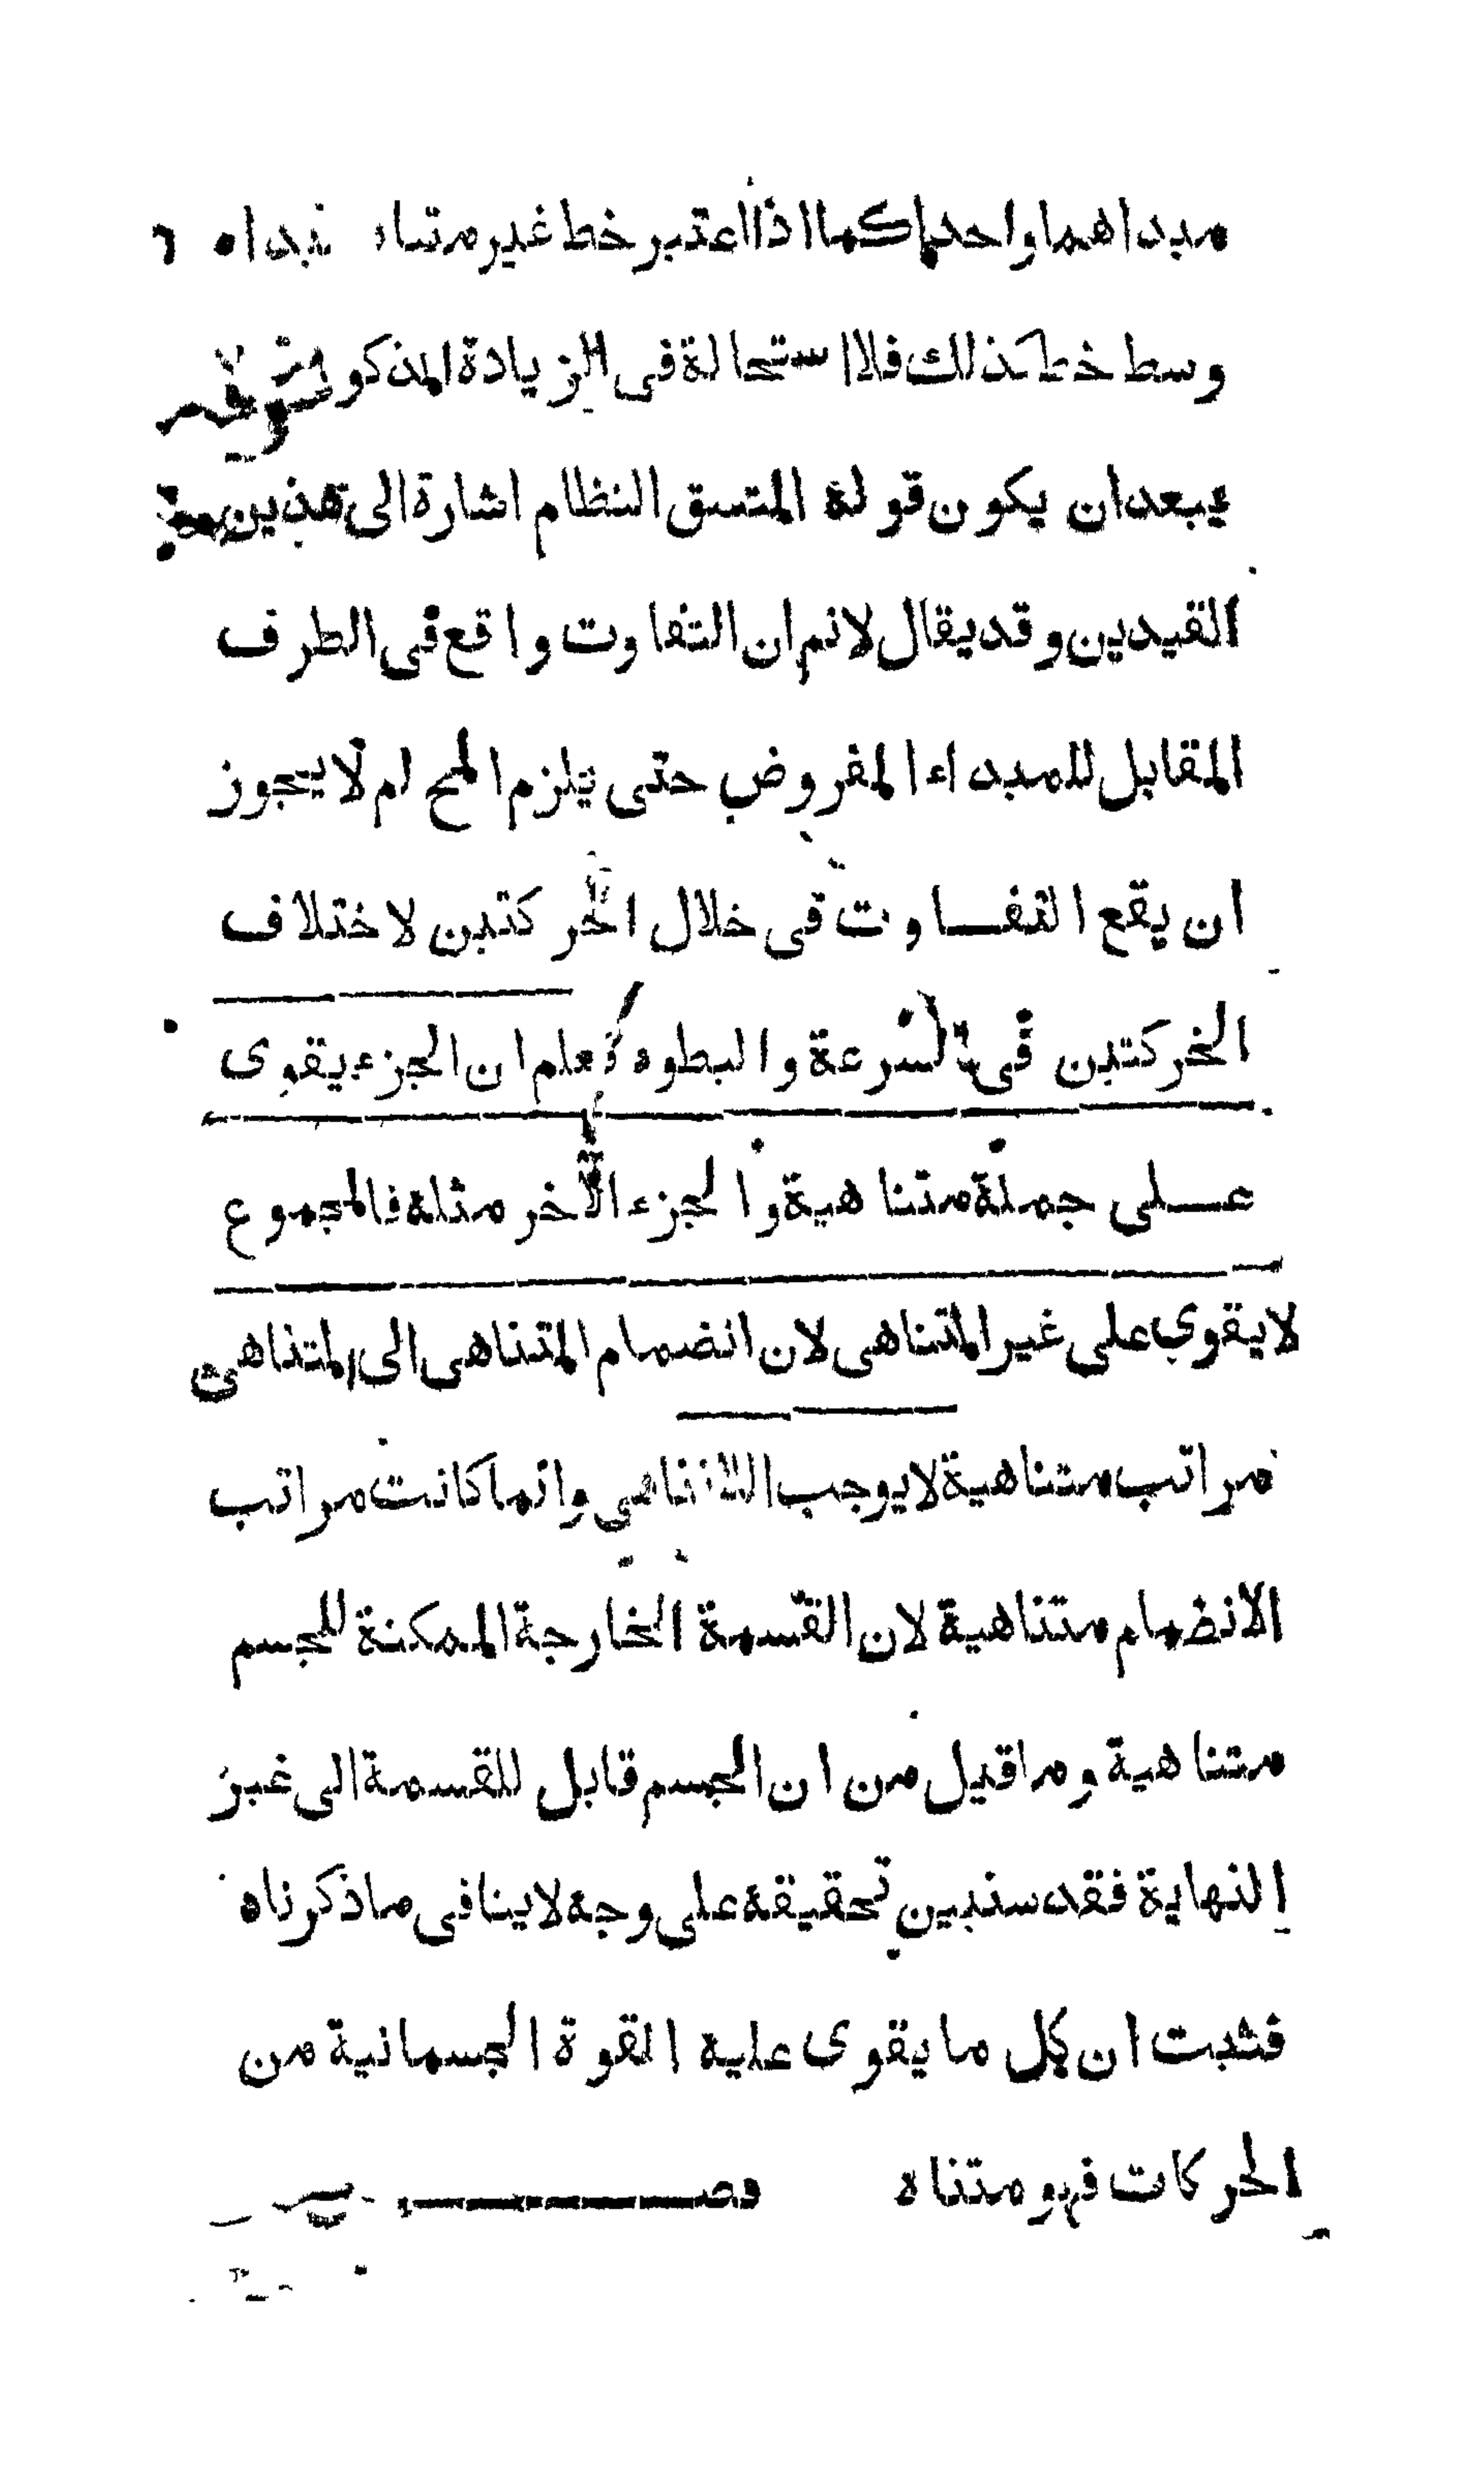 مبداهما واحدا كما اذا اعتبر خط غير متناه مبداه
وسط خط كذلك فلا استحالة فى الزيادة المذكورة ولا
يبعد ان يكون قوله المتسق النظام اشارة الى هذين
القيدين وقد يقال لانم ان التفاوت واقع فى الطرف
المقابل للمبداء المفروض حتى يلزم المح لم لا يجوز
ان يقع التفاوت فى خلال الحركتين لاختلاف
الحركتين فى السرعة والبطوء فعلم ان الجزء يقوى
على جملة متناهية والجزء الآخر مثله فالمجموع
لا يقوى على غير المتناهى لان انضمام المتناهى الى المتناهى
مراتب متناهية لا يوجب اللاتناهى وانما كانت مراتب
الانضمام متناهية لان القسمة الخارجة الممكنة للجسم
متناهية وما قيل من ان الجسم قابل للقسمة الى غير
النهاية فقد سنبين تحقيقه على وجه لا ينافى ما ذكرناه
فثبت ان كل ما يقوى عليه القوة الجسمانية من
الحركات فهو متناه